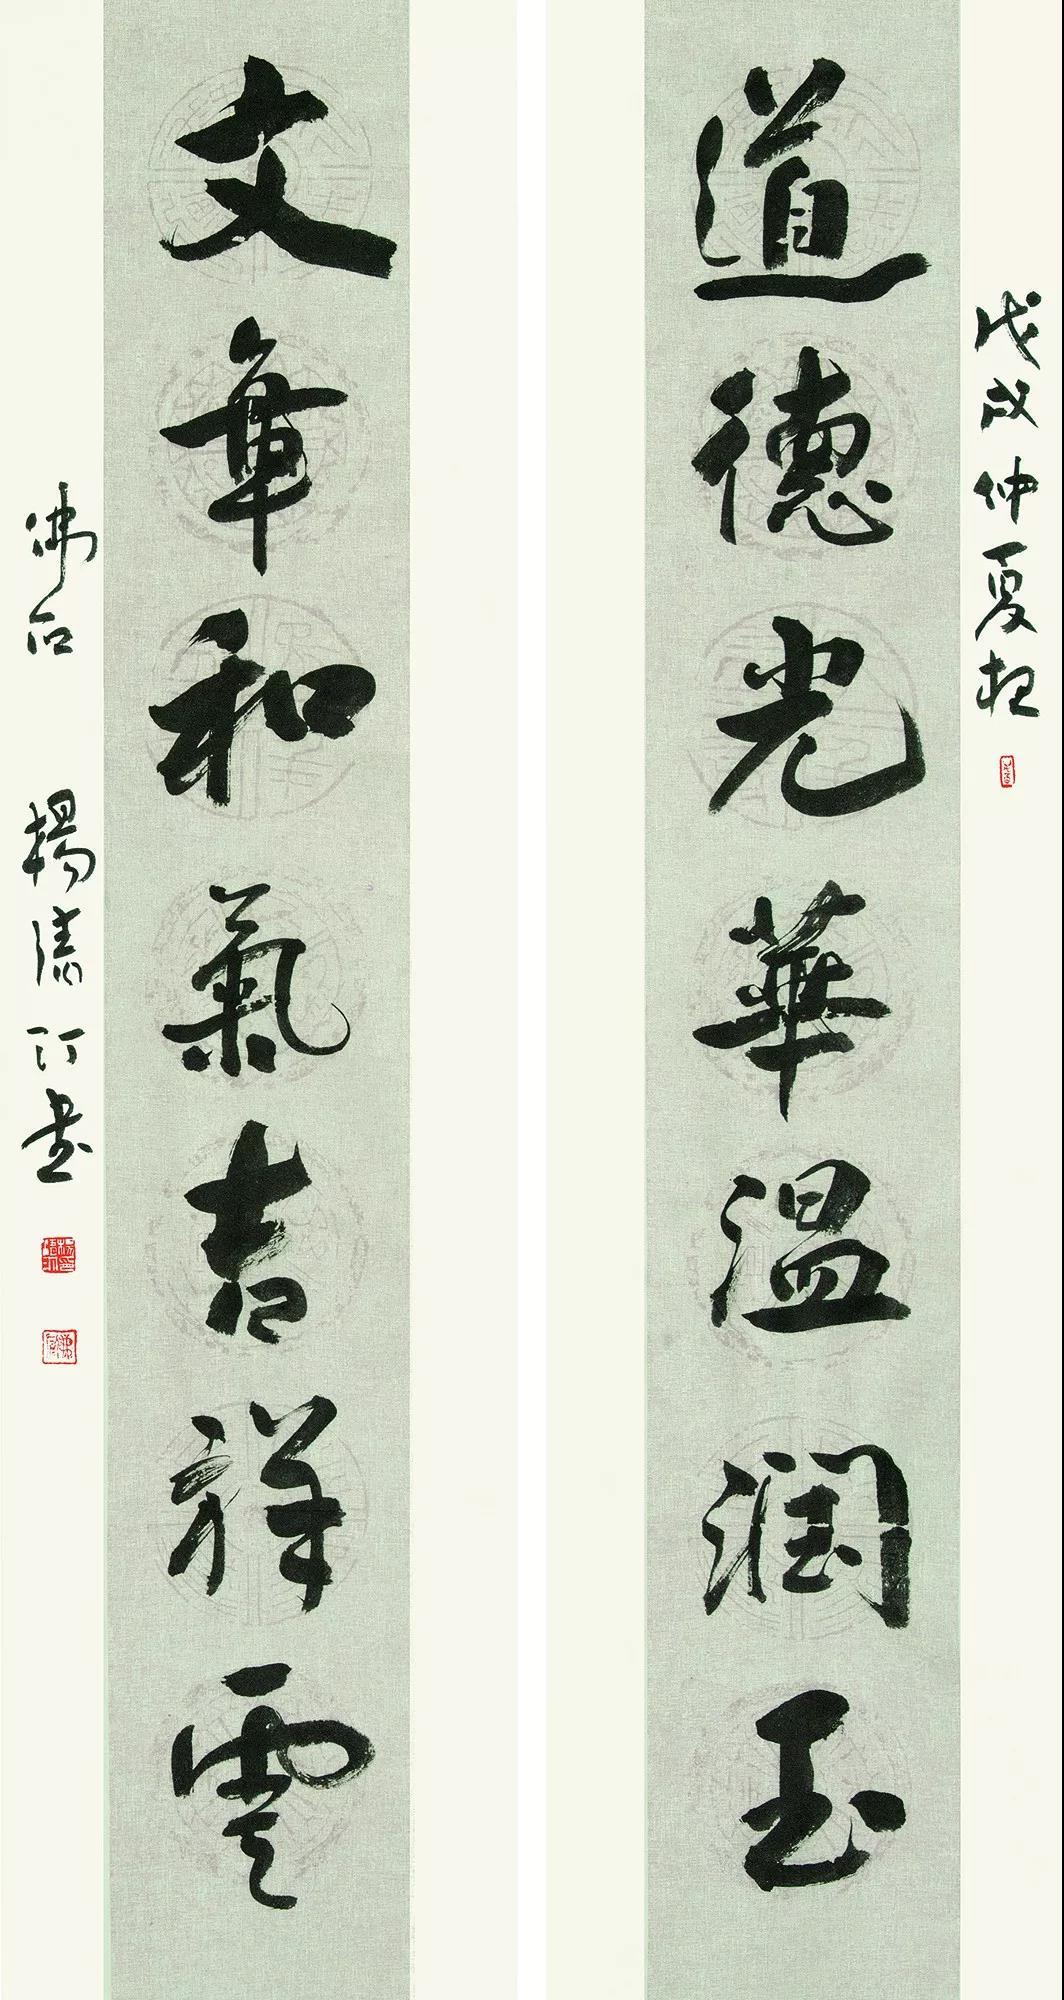 戊戌仲夏於
道德光華温潤玉
文章和氣吉祥雲
佛石 楊清汀書